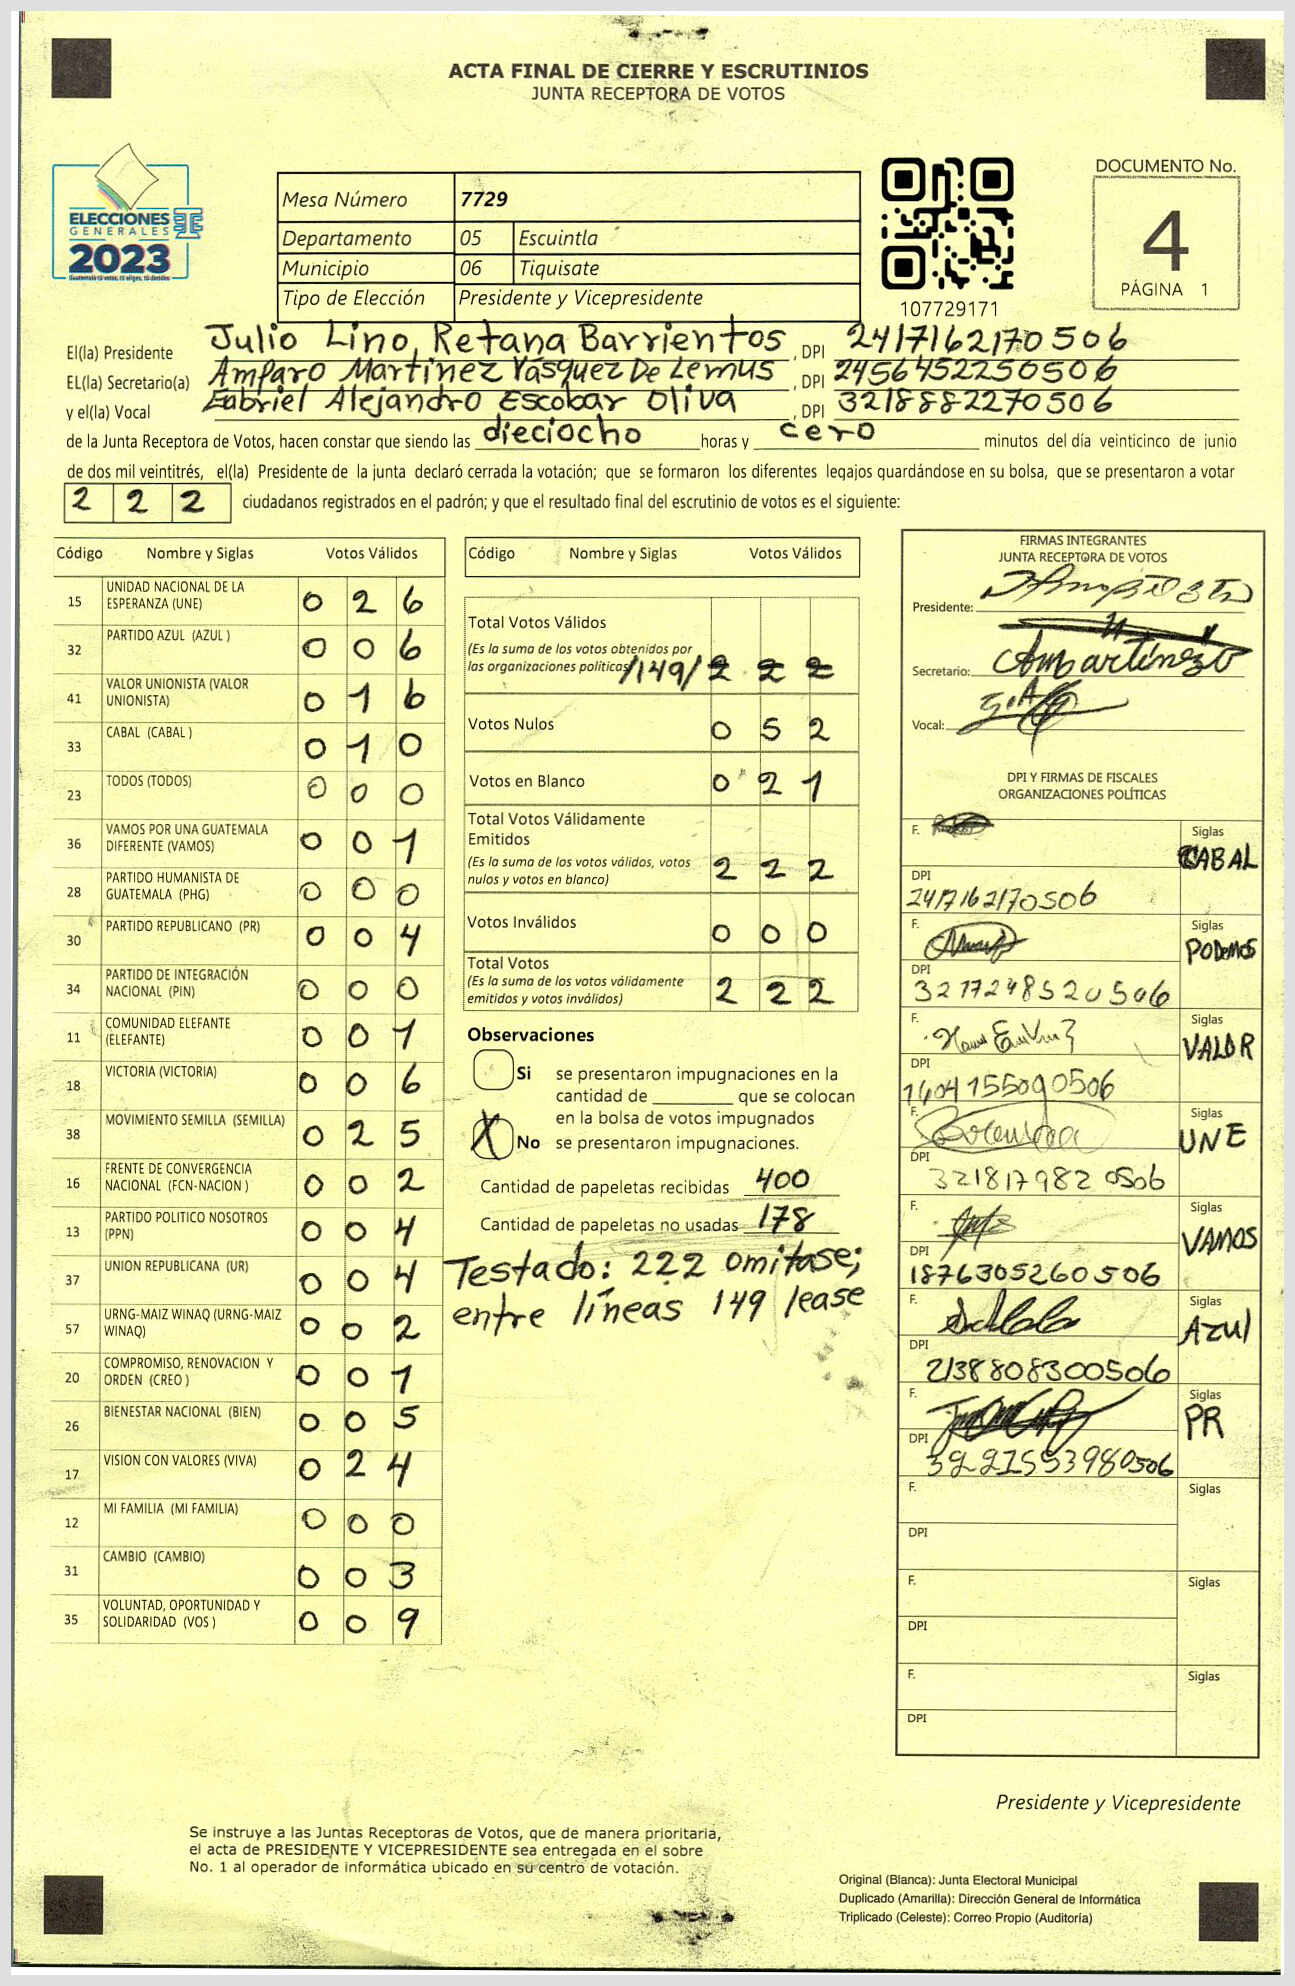 ACTA FINAL DE CIERRE Y ESCRUTINIOS
JUNTA RECEPTORA DE VOTOS
ELECCIONES
GENERALES
2023
Mesa Número 7729
Departamento 05 Escuintla
Municipio 06 Tiquisate
Tipo de Elección Presidente y Vicepresidente
107729171
DOCUMENTO No.
4
PÁGINA 1
El(la) Presidente Julio Lino, Retana Barrientos, DPI 2417162170506
EL(la) Secretario(a) Amparo Martínez Vásquez De Lemus, DPI 2456452250506
y el(la) Vocal Gabriel Alejandro Escobar Oliva, DPI 3218882270506
de la Junta Receptora de Votos, hacen constar que siendo las dieciocho horas y cero minutos del día veinticinco de junio
de dos mil veintitrés, el(la) Presidente de la junta declaró cerrada la votación; que se formaron los diferentes legajos quardándose en su bolsa, que se presentaron a votar
2 2 2 ciudadanos registrados en el padrón; y que el resultado final del escrutinio de votos es el siguiente:
Código Nombre y Siglas Votos Válidos
15 UNIDAD NACIONAL DE LA ESPERANZA (UNE) 0 2 6
32 PARTIDO AZUL (AZUL ) 0 0 6
41 VALOR UNIONISTA (VALOR UNIONISTA) 0 1 6
33 CABAL (CABAL ) 0 1 0
23 TODOS (TODOS) 0 0 0
36 VAMOS POR UNA GUATEMALA DIFERENTE (VAMOS) 0 0 1
28 PARTIDO HUMANISTA DE GUATEMALA (PHG) 0 0 0
30 PARTIDO REPUBLICANO (PR) 0 0 4
34 PARTIDO DE INTEGRACIÓN NACIONAL (PIN) 0 0 0
11 COMUNIDAD ELEFANTE (ELEFANTE) 0 0 1
18 VICTORIA (VICTORIA) 0 0 6
38 MOVIMIENTO SEMILLA (SEMILLA) 0 2 5
16 FRENTE DE CONVERGENCIA NACIONAL (FCN-NACION ) 0 0 2
13 PARTIDO POLITICO NOSOTROS (PPN) 0 0 4
37 UNION REPUBLICANA (UR) 0 0 4
57 URNG-MAIZ WINAQ (URNG-MAIZ WINAQ) 0 0 2
20 COMPROMISO, RENOVACION Y ORDEN (CREO ) 0 0 1
26 BIENESTAR NACIONAL (BIEN) 0 0 5
17 VISION CON VALORES (VIVA) 0 2 4
12 MI FAMILIA (MI FAMILIA) 0 0 0
31 CAMBIO (CAMBIO) 0 0 3
35 VOLUNTAD, OPORTUNIDAD Y SOLIDARIDAD (VOS ) 0 0 9
Código Nombre y Siglas Votos Válidos
Total Votos Válidos
(Es la suma de los votos obtenidos por
las organizaciones políticas) /149/ 2 2 2
Votos Nulos 0 5 2
Votos en Blanco 0 2 1
Total Votos Válidamente
Emitidos
(Es la suma de los votos válidos, votos
nulos y votos en blanco) 2 2 2
Votos Inválidos 0 0 0
Total Votos
(Es la suma de los votos válidamente
emitidos y votos inválidos) 2 2 2
Observaciones
Si se presentaron impugnaciones en la
cantidad de ________ que se colocan
en la bolsa de votos impugnados
X No se presentaron impugnaciones.
Cantidad de papeletas recibidas 400
Cantidad de papeletas no usadas 178
Testado: 222 omitase;
entre líneas 149 lease
FIRMAS INTEGRANTES
JUNTA RECEPTORA DE VOTOS
Presidente:
Secretario: AMartínez
Vocal:
DPI Y FIRMAS DE FISCALES
ORGANIZACIONES POLÍTICAS
F. Siglas CABAL
DPI 2417162170506
F. Siglas PODEMOS
DPI 3217248520506
F. Siglas VALOR
DPI 1604155090506
F. Siglas UNE
DPI 3218179820506
F. Siglas VAMOS
DPI 1876305260506
F. Siglas AZUL
DPI 2138808300506
F. Siglas PR
DPI 3221553980506
F. Siglas
DPI
F. Siglas
DPI
F. Siglas
DPI
Presidente y Vicepresidente
Se instruye a las Juntas Receptoras de Votos, que de manera prioritaria,
el acta de PRESIDENTE Y VICEPRESIDENTE sea entregada en el sobre
No. 1 al operador de informática ubicado en su centro de votación.
Original (Blanca): Junta Electoral Municipal
Duplicado (Amarilla): Dirección General de Informática
Triplicado (Celeste): Correo Propio (Auditoría)